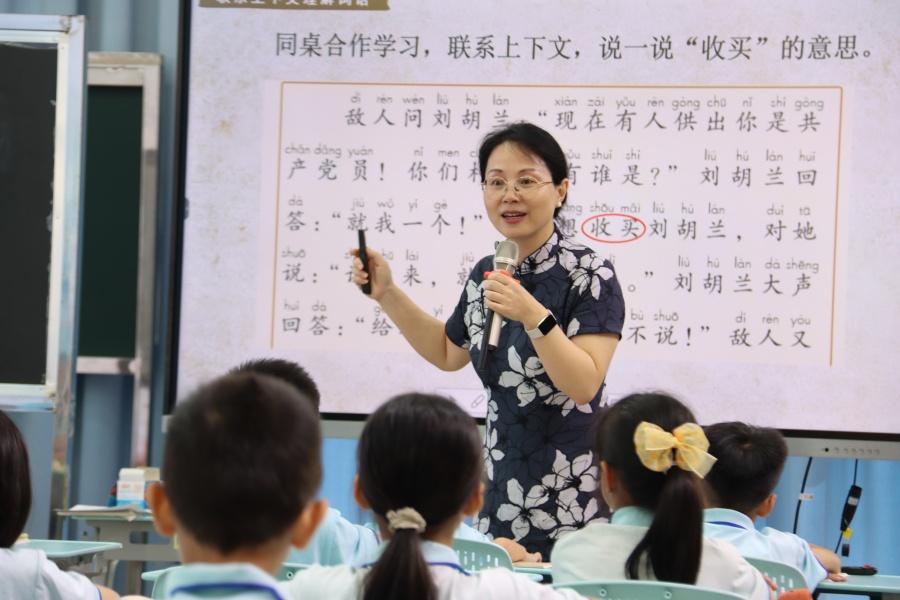 联系上下文理解词语
同桌合作学习，联系上下文，说一说“收买”的意思。
dí rén wèn liú hú lán xiàn zài yǒu rén gòng chū nǐ shì gòng
敌人问刘胡兰：“现在有人供出你是共
chǎn dǎng yuán nǐ men yǒu shuí shì liú hú lán huí
产党员！你们 有谁是？”刘胡兰回
dá jiù wǒ yí gè shōu mǎi liú hú lán duì tā
答：“就我一个！” 想收买刘胡兰，对她
shuō lái jiù liú hú lán dà shēng
说：“ 来，就 。”刘胡兰大声
huí dá bù shuō dí rén yòu
回答：“给 不说！”敌人又